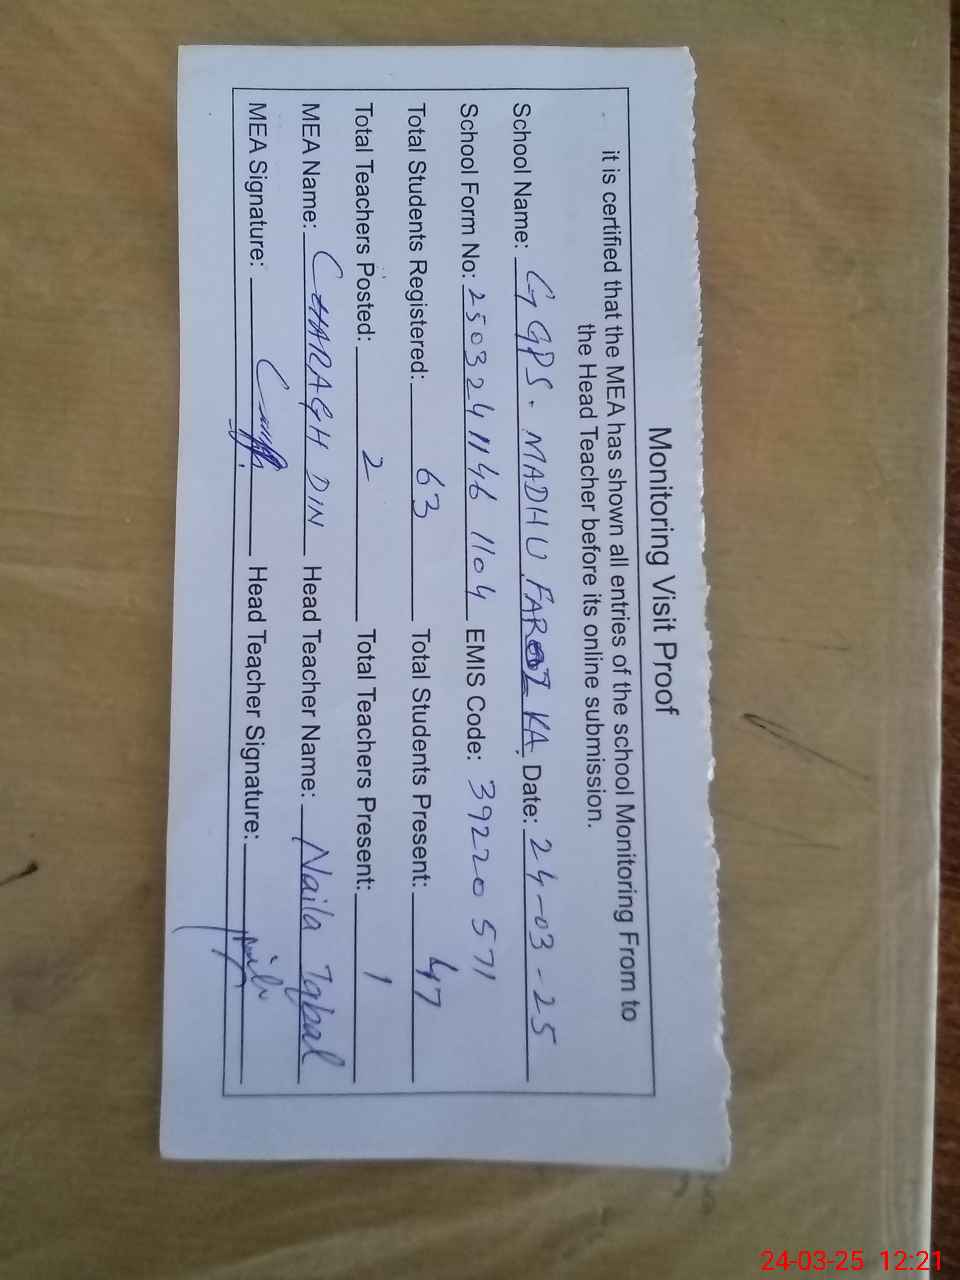 Monitoring Visit Proof
it is certified that the MEA has shown all entries of the school Monitoring From to
the Head Teacher before its online submission.
School Name: GGPS. MADHU FAROOZ KA Date: 24-03-25
School Form No: 2503241146 1104 EMIS Code: 39220571
Total Students Registered: 63 Total Students Present: 47
Total Teachers Posted: 2 Total Teachers Present: 1
MEA Name: CHARAGH DIN Head Teacher Name: Naila Iqbal
MEA Signature: Head Teacher Signature:
24-03-25 12:21